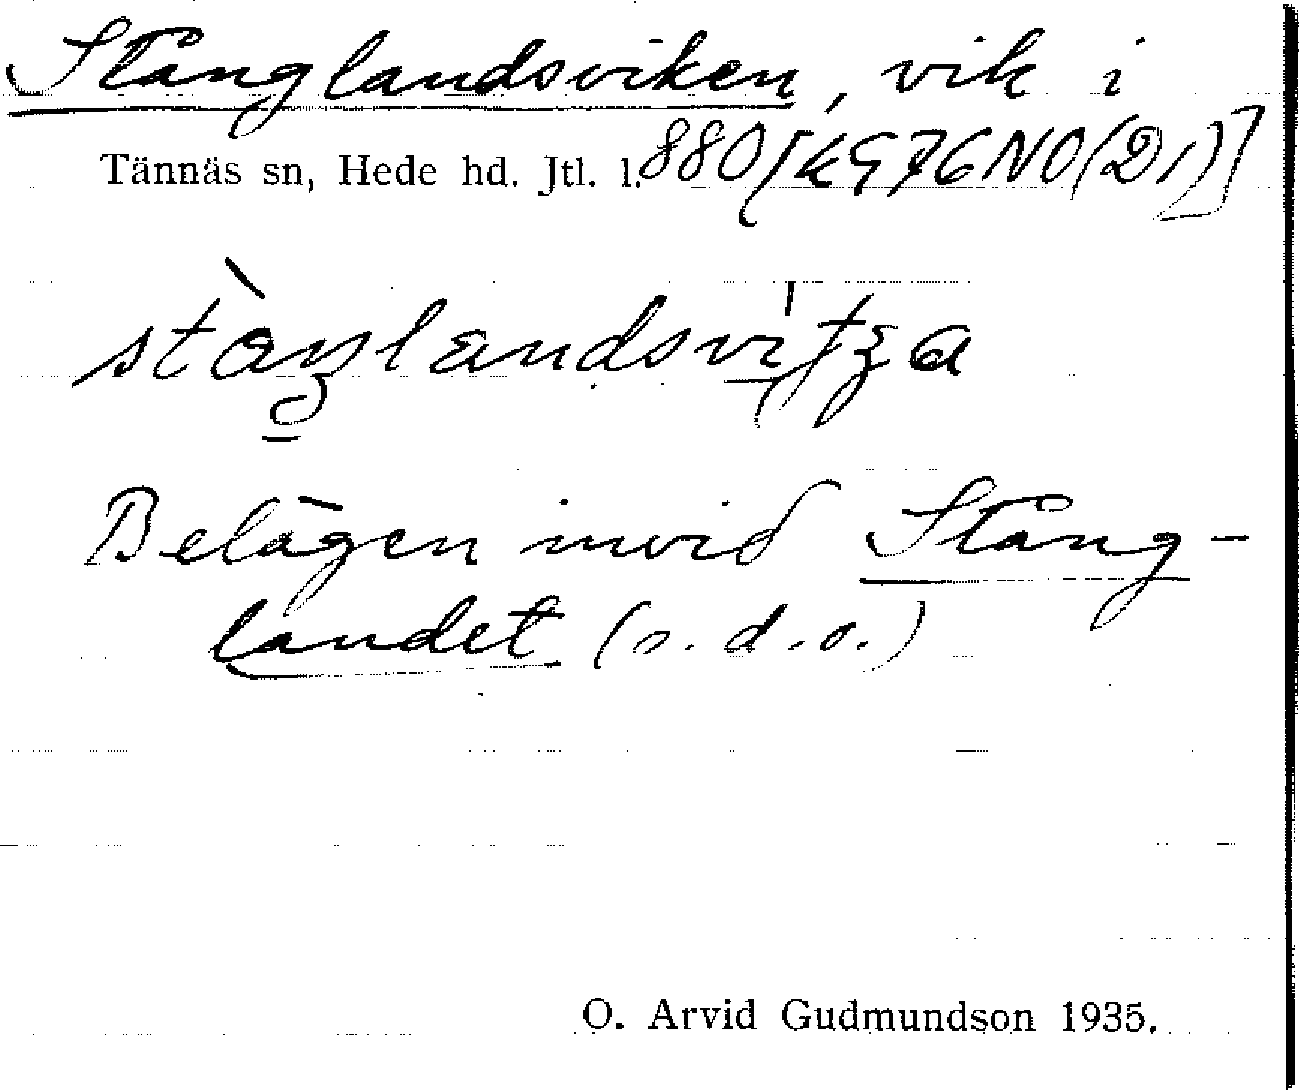 Stånglandsviken, vik i
Tännäs sn, Hede hd. Jtl. l. 880 [KG76NO(D1)]
Belägen invid Stång-
landet (s. d. o.)
O. Arvid Gudmundson 1935.